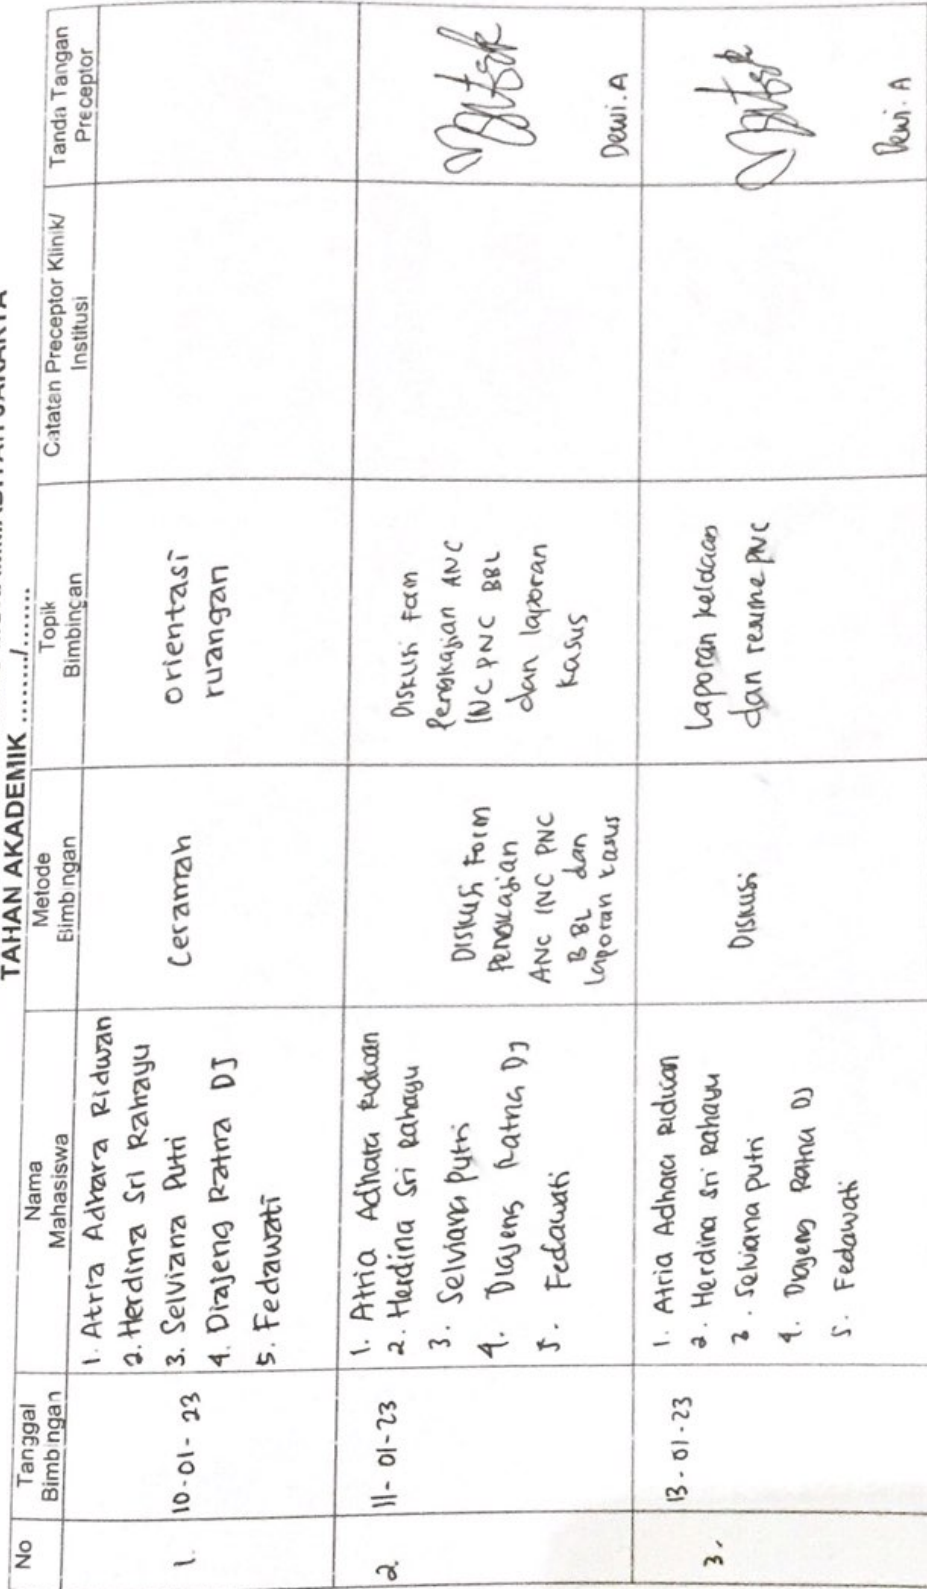 TAHAN AKADEMIK ......../........
No
Tanggal
Bimbingan
Nama
Mahasiswa
Metode
Bimbingan
Topik
Bimbingan
Catatan Preceptor Klinik/
Institusi
Tanda Tangan
Preceptor
1.
10-01-23
1. Atria Adhara Ridwan
2. Herdina Sri Rahayu
3. Selviana Putri
4. Diajeng Ratna DJ
5. Fedawati
Ceramah
orientasi
ruangan
2.
11-01-23
1. Atria Adhara Ridwan
2. Herdina Sri Rahayu
3. Selviana Putri
4. Diajeng Ratna DJ
5. Fedawati
Diskusi Form
Pengkajian
ANC INC PNC
BBL dan
Laporan kasus
Diskusi Form
Pengkajian ANC
INC PNC BBL
dan laporan
kasus
Dewi.A
3.
13-01-23
1. Atria Adhara Ridwan
2. Herdina Sri Rahayu
3. Selviana Putri
4. Diajeng Ratna DJ
5. Fedawati
Diskusi
Laporan
dan resume PNC
Dewi.A